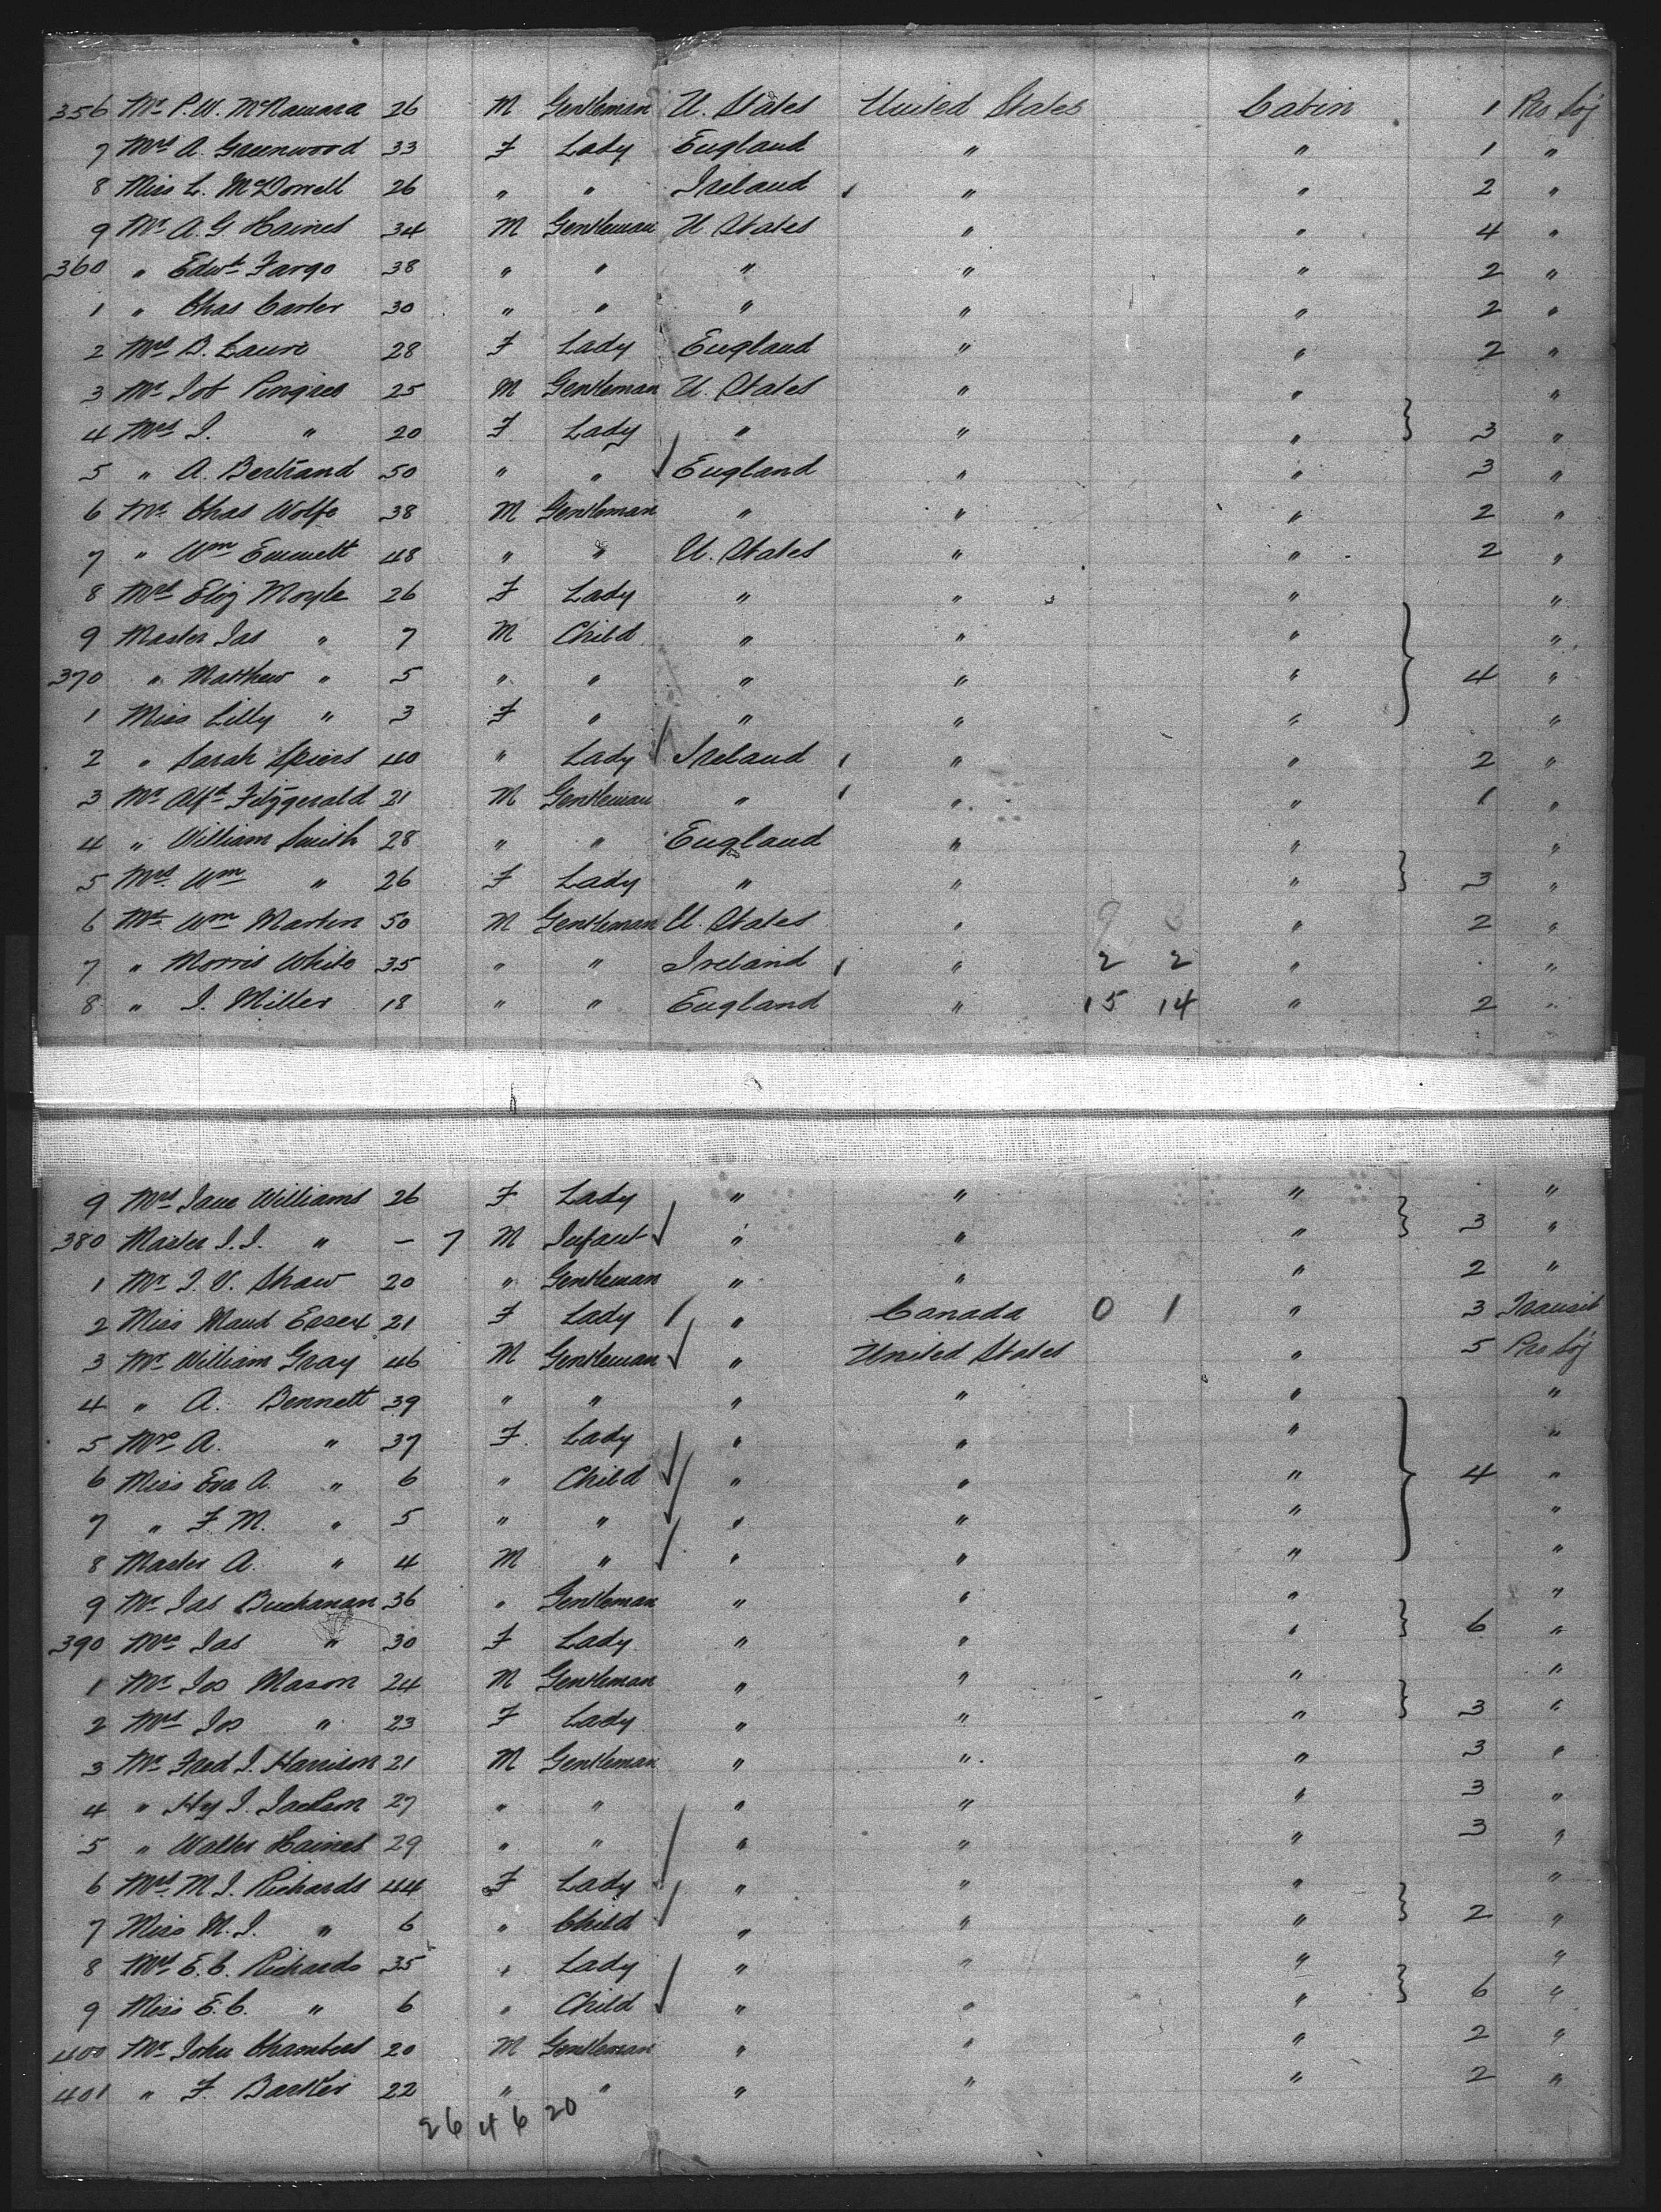 356 Mr P. W. McNamara 26 M Gentleman U. States United States Cabin 1 Pro Soj
7 Mrs A. Greenwood 33 F Lady England " " 1 "
8 Miss L. McDowell 26 " " Ireland " " 2 "
9 Mr A. G. Haines 34 M Gentleman U States " " 4 "
360 " Edwd Fargo 38 " " " " " 2 "
1 " Chas Carter 30 " " " " " 2 "
2 Mrs B. Laure 28 F Lady England " " 2 "
3 Mr Job Pingree 25 M Gentleman U. States " " "
4 Mrs J. " 20 F Lady " " " 3 "
5 " A. Bertrand 50 " " England " " 3 "
6 Mr Chas Wolfe 38 M Gentleman " " " 2 "
7 " Wm Emmett 48 " " U. States " " 2 "
8 Mrs Eliz Moyle 26 F Lady " " " "
9 Master Jas " 7 M Child " " " "
370 " Matthew " 5 " " " " " 4 "
1 Miss Lilly " 3 F " " " " "
2 " Sarah Spiers 40 " Lady Ireland " " 2 "
3 Mr Alfd Fitzgerald 21 M Gentleman " " " 1 "
4 " William Smith 28 " " England " " "
5 Mrs Wm " 26 F Lady " " " 3 "
6 Mr Wm Martin 50 M Gentleman U. States " " 2 "
7 " Morris White 35 " " Ireland " 2 2 " "
8 " J. Miller 18 " " England " 15 14 " 2 "
9 Mrs Jane Williams 26 F Lady " " " "
380 Master J. J. " – 7 M Infant " " " 3 "
1 Mr J. V. Shaw 20 " Gentleman " " " 2 "
2 Miss Maud Essex 21 F Lady " Canada 0 1 " 3 Transit
3 Mr William Gray 46 M Gentleman " United States " 5 Pro Soj
4 " A. Bennett 39 " " " " " "
5 Mrs A. " 37 F. Lady " " " "
6 Miss Eva A. " 6 " Child " " " 4 "
7 " F. M. " 5 " " " " " "
8 Master A. " 4 M " " " " "
9 Mr Jas Buchanan 36 " Gentleman " " " "
390 Mrs Jas " 30 F Lady " " " 6 "
1 Mr Jos Mason 24 M Gentleman " " " "
2 Mrs Jos " 23 F Lady " " " 3 "
3 Mr Fred J. Harrison 21 M Gentleman " " " 3 "
4 " Hy J. Jackson 27 " " " " " 3 "
5 " Walter Haines 29 " " " " " 3 "
6 Mrs M. J. Richards 44 F Lady " " " "
7 Miss M. J. " 6 " Child " " " 2 "
8 Mrs E. C. Richards 35 " Lady " " " "
9 Miss E. C. " 6 " Child " " " 6 "
400 Mr John Chambers 20 M Gentleman " " " 2 "
401 " F. Barker 22 " " " " " 2 "
26 4 6 20